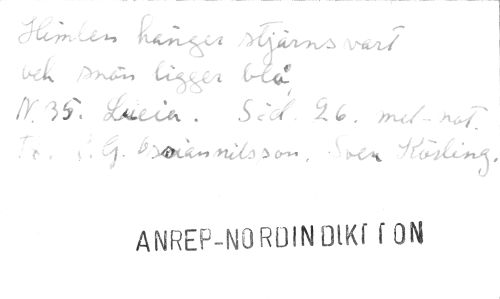 Himlen hänger stjärnsvart
och snön ligger blå
N. 35. Lucia. Sid. 26. mel-not.
To. S.G. Ossiannilsson. Sven Körling.
ANREP-NORDINDIKTION